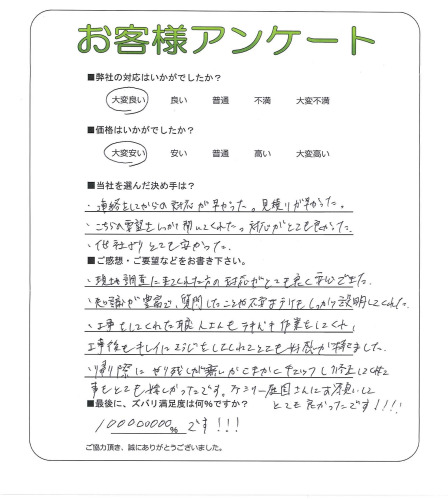 お客様アンケート
■弊社の対応はいかがでしたか？
大変良い 良い 普通 不満 大変不満
■価格はいかがでしたか？
大変安い 安い 普通 高い 大変高い
■当社を選んだ決め手は？
・連絡をしてからの対応が早かった。見積りが早かった。
・こちらの要望をしっかり聞いてくれた。対応がとても良かった。
・他社よりとても安かった。
■ご感想・ご要望などをお書き下さい。
・現地調査に来てくれた方の対応がとても良く安心できた。
・知識が豊富で、質問したことや不安な うけをしっかり説明してくれた。
・工事をしてくれた職人さんも テキパキ作業をしてくれ、
工事後もキレイにそうじをしてくれてとても好感が持てました。
・帰り際に やり残しが無いかこまかくチェックし 修正してくれた
事もとても嬉しかったです。ファミリー庭園さんにお願いして
■最後に、ズバリ満足度は何%ですか？
とても良かったです！！！！
100000000%です！！！
ご協力頂き、誠にありがとうございました。